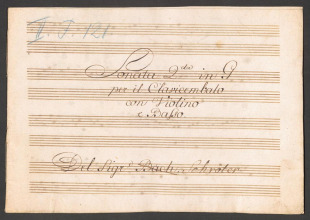 II. J. 121
Sonata 2da in G
per il Clavicembalo
con Violino
e Basso.
Del Sigr. Bach Schröter